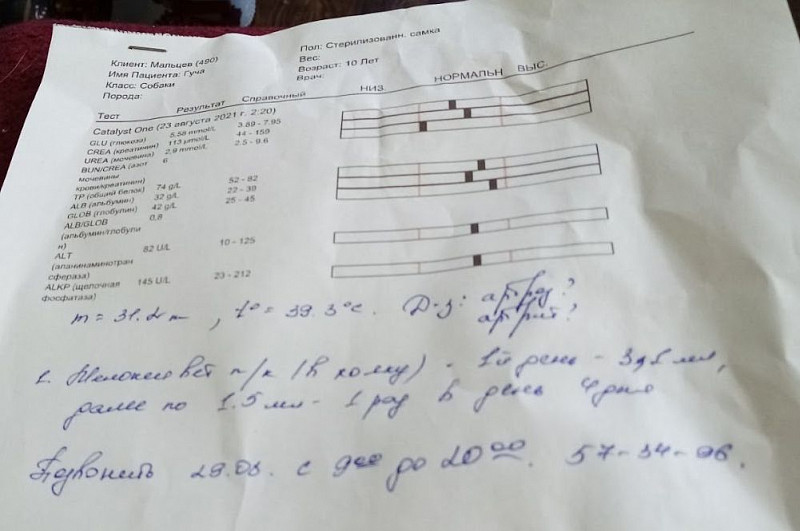 Клиент: Мальцев (490)
Имя Пациента: Гуча
Класс: Собаки
Порода:
Пол: Стерилизованн. самка
Вес:
Возраст: 10 Лет
Врач:
Тест Результат Справочный НИЗ. НОРМАЛЬН ВЫС.
Catalyst One (23 августа 2021 г. 2:20)
GLU (глюкоза) 5,58 mmol/L 3.89 - 7.95
CREA (креатинин) 113 µmol/L 44 - 159
UREA (мочевина) 2,9 mmol/L 2.5 - 9.6
BUN/CREA (азот 6
мочевины
крови/креатинин)
TP (общий белок) 74 g/L 52 - 82
ALB (альбумин) 32 g/L 22 - 39
GLOB (глобулин) 42 g/L 25 - 45
ALB/GLOB 0,8
(альбумин/глобули
н)
ALT 82 U/L 10 - 125
(аланинаминотран
сфераза)
ALKP (щелочная 145 U/L 23 - 212
фосфатаза)
t° = 39.3°c. Д-з: артроз?
артрит?
1. Мелоксивет п/к (в холку) - 1й день - 3 мл,
далее по 1.5 мл - 1 раз в день 4 дня
Позвонить с 9⁰⁰ до 20⁰⁰. 57-34-96.